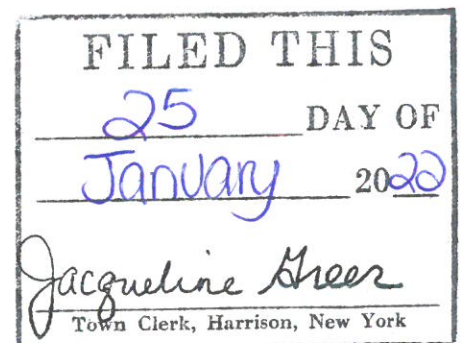 FILED THIS
25 DAY OF
January 2022
Jacqueline Greer
Town Clerk, Harrison, New York